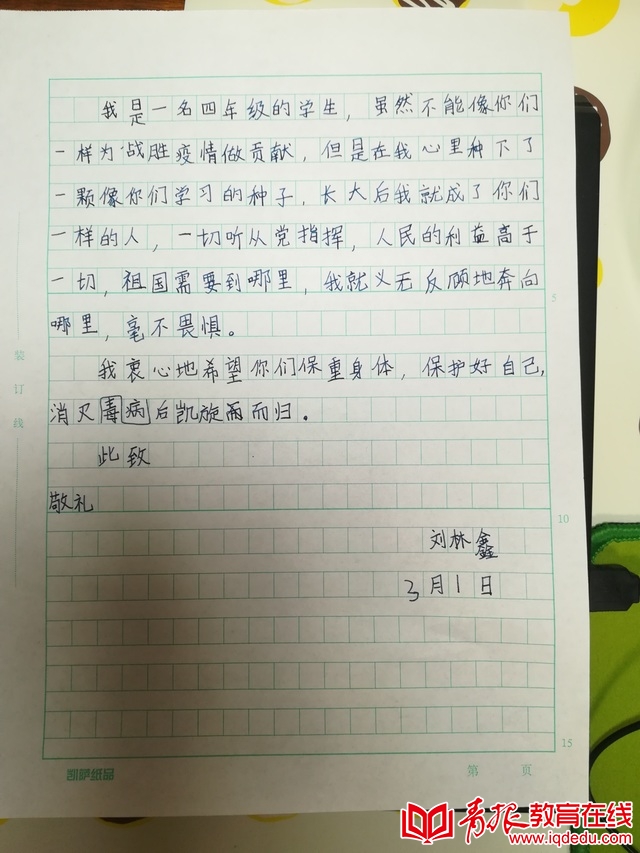 我是一名四年级的学生，虽然不能像你们
一样为战胜疫情做贡献，但是在我心里种下了
一颗像你们学习的种子，长大后我就成了你们
一样的人，一切听从党指挥，人民的利益高于
一切，祖国需要到哪里，我就义无反顾地奔向
哪里，毫不畏惧。
我衷心地希望你们保重身体，保护好自己，
消灭毒病后凯旋而归。
此致
敬礼
刘林鑫
3月1日
装订线
5
10
15
凯萨纸品
第 页
青报教育在线
www.iqdedu.com